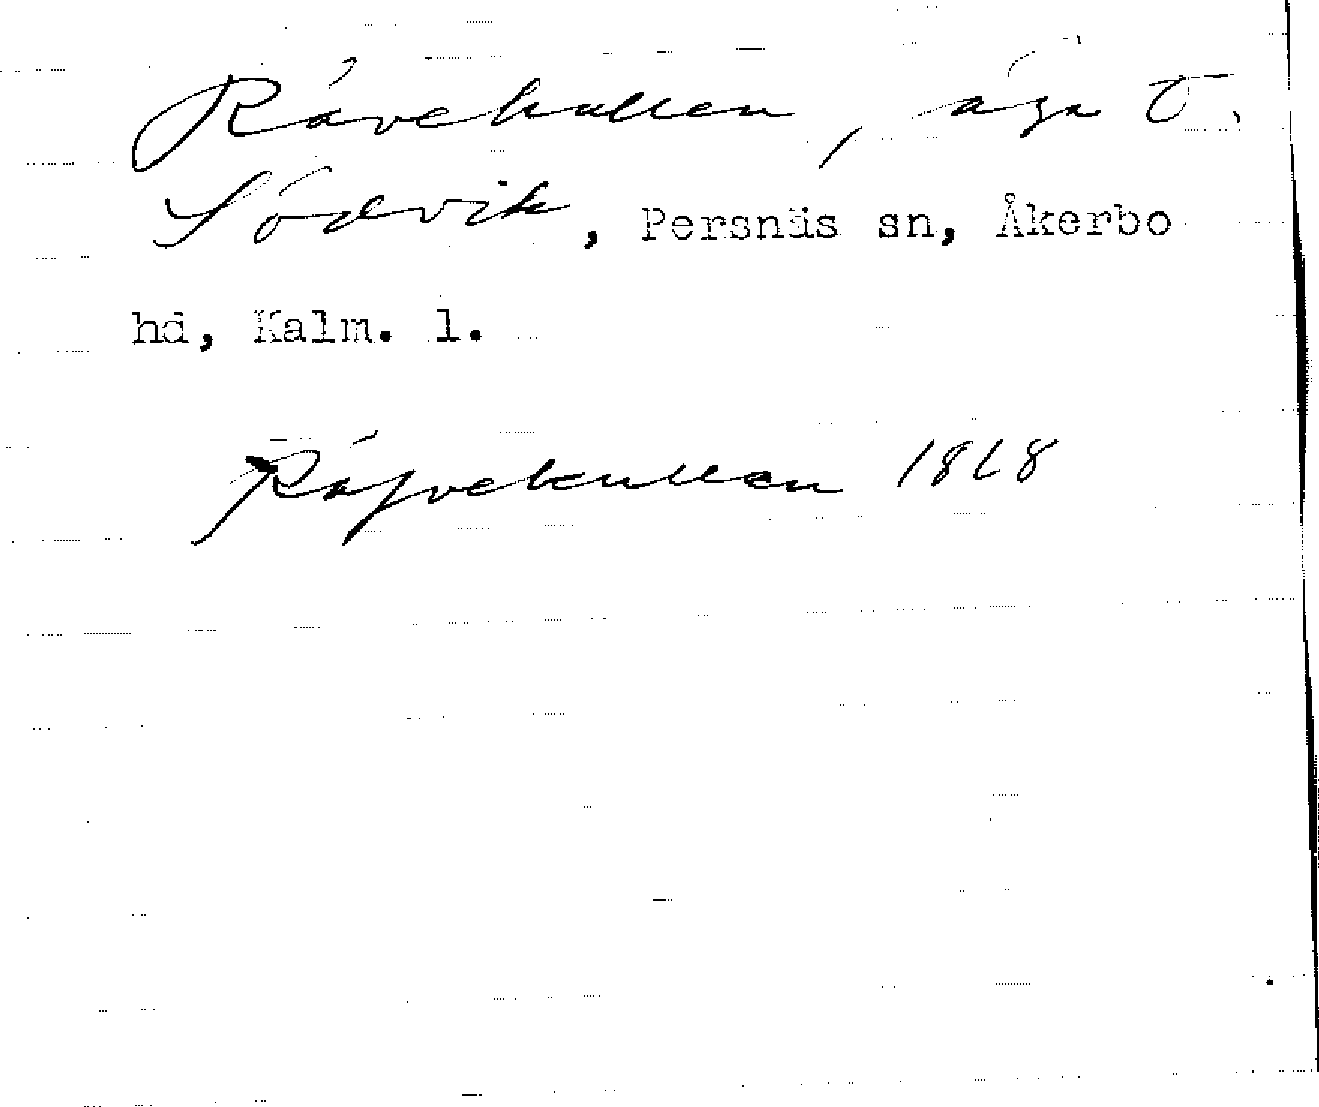 Rävekullen, äga Ö.
Södvik, Persnäs sn, Åkerbo
hd, Kalm. l.
Räfvekullen 1868